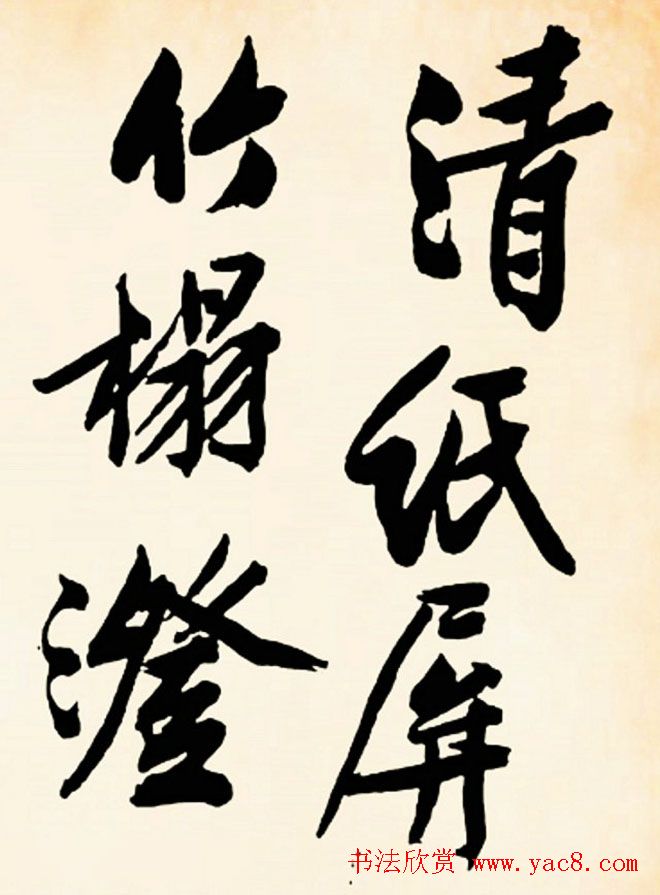 清纸屏
竹榻澄
书法欣赏 www.yac8.com